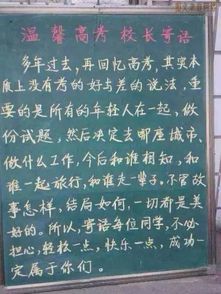 温馨高考 校长寄语
多年过去,再回忆高考,其实本
质上没有考的好与差的说法,重
要的是所有的年轻人在一起,做
份试题,然后决定去哪座城市,
做什么工作,今后和谁相知,和
谁一起旅行,和谁走一辈子。不管故
事怎样,结局如何,一切都是美
好的。所以,寄语每位同学,不必
担心,轻松一点,快乐一点,成功一
定属于你们。